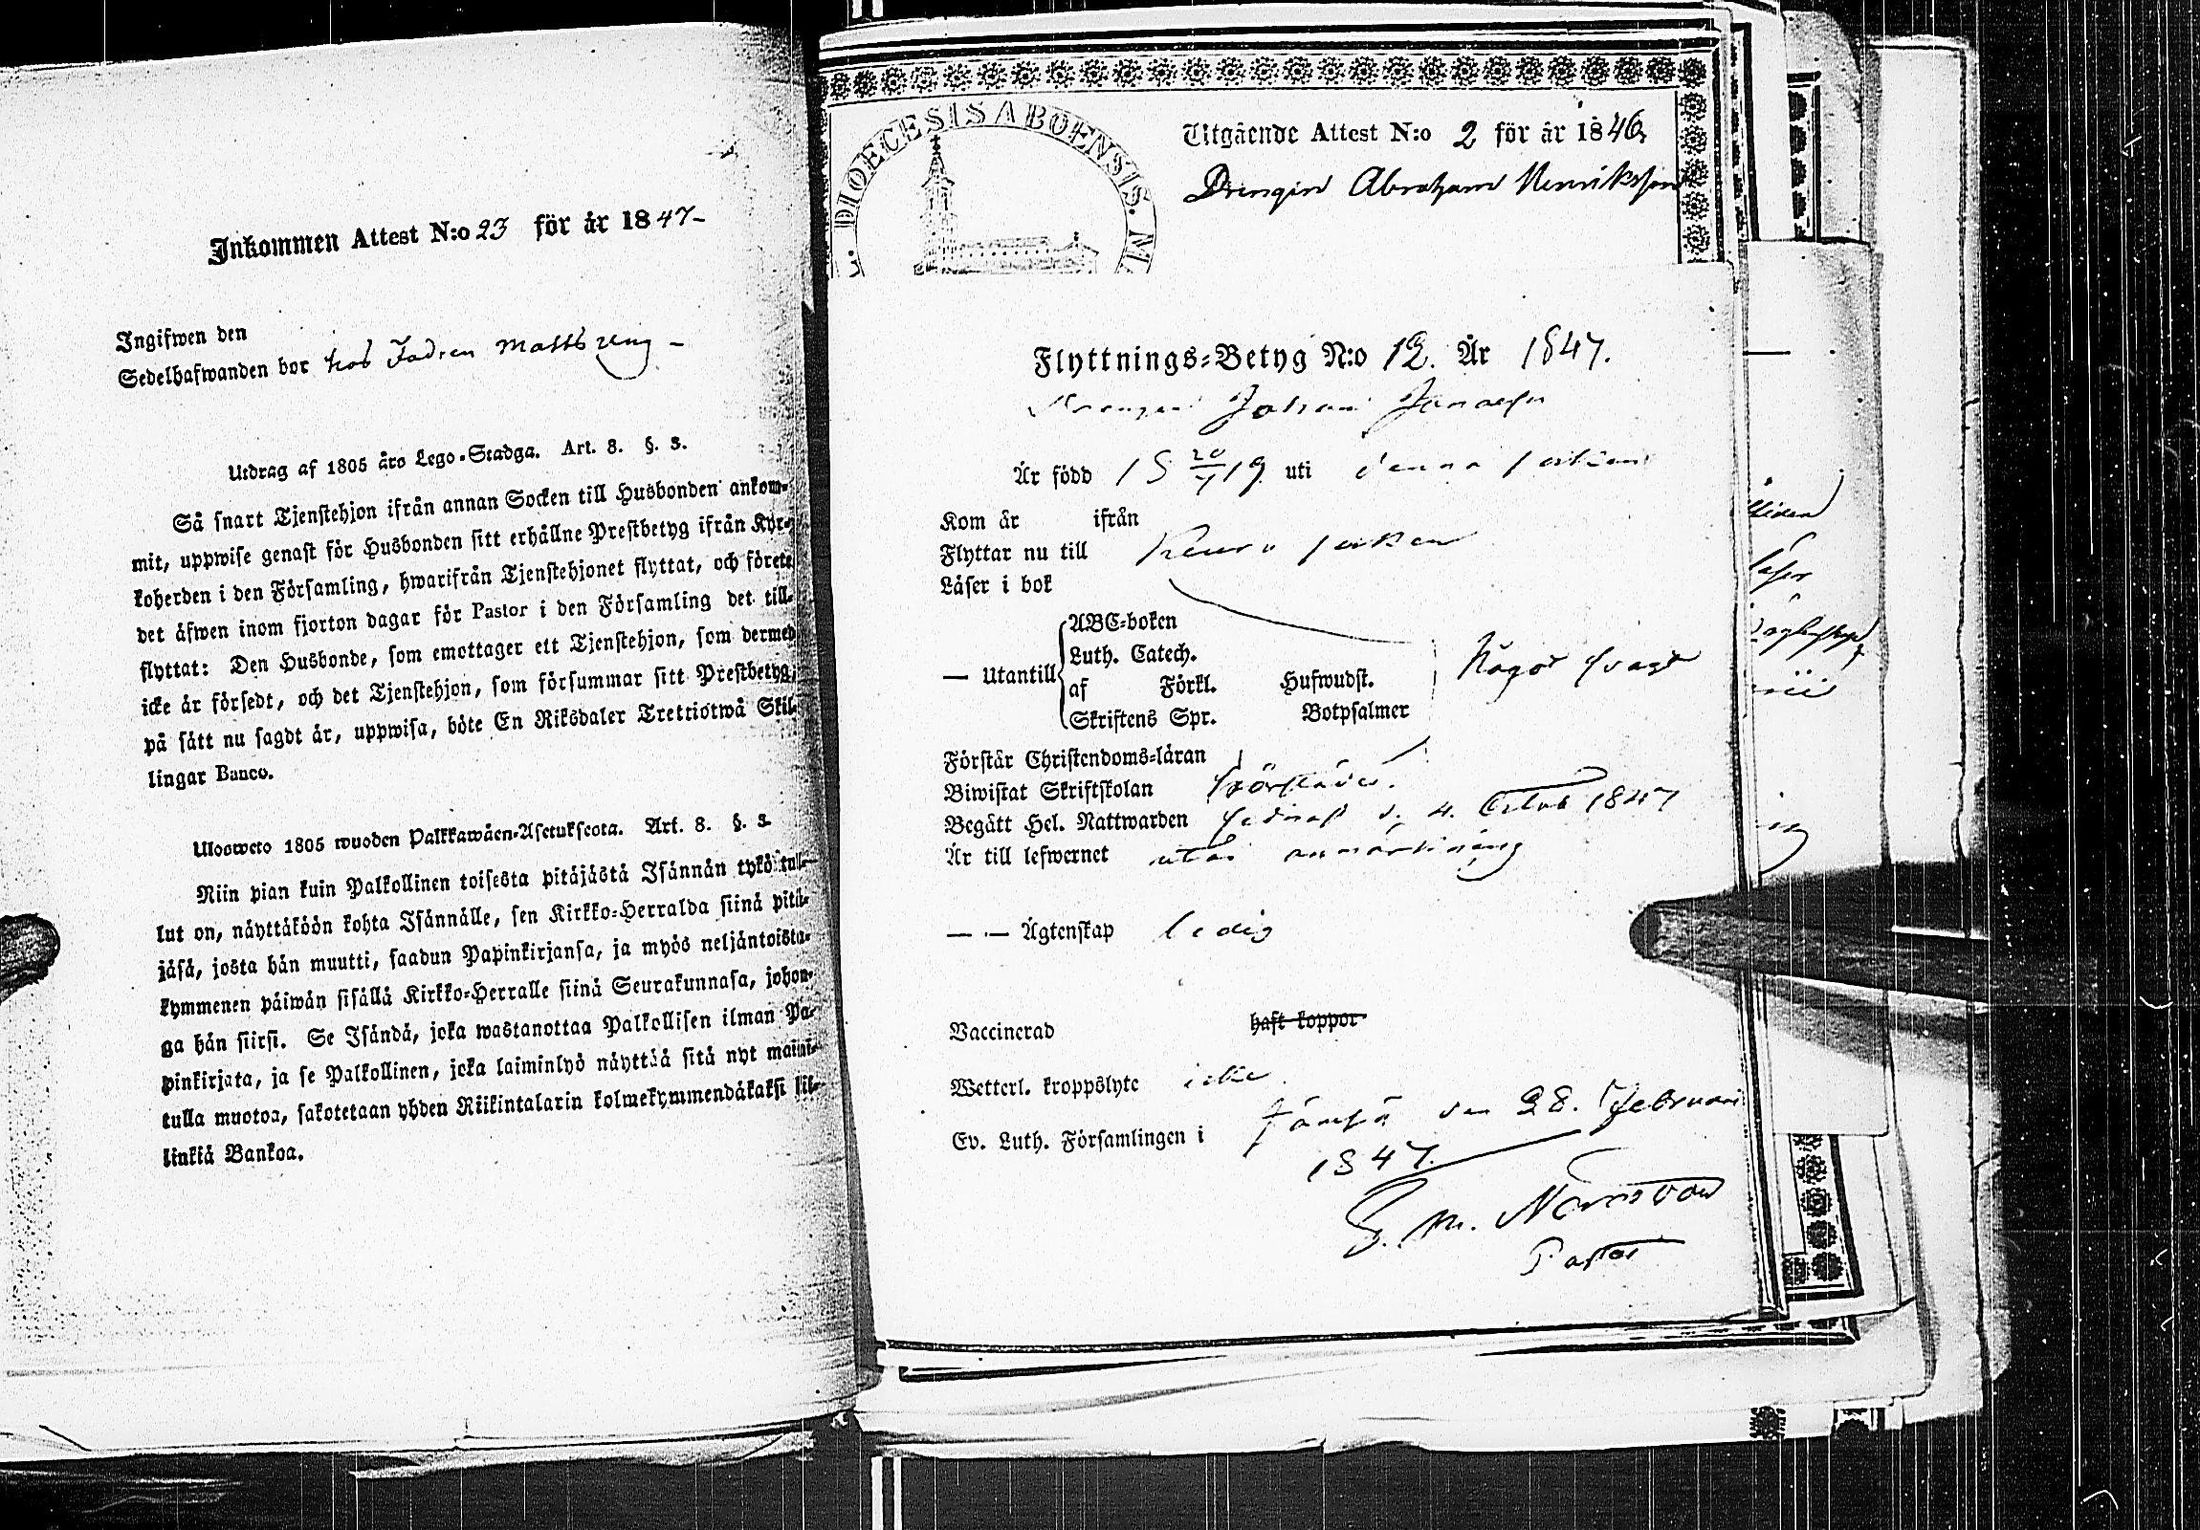 Inkommen Attest N:o 23 för år 1847-
Ingifwen den
Sedelhafwanden bor hos Fadren Matts
Utdrag af 1805 års Lego-Stadga. Art. 8. §. 3.
Så snart Tjenstehjon ifrån annan Socken till Husbonden ankom-
mit, uppwise genast för Husbonden sitt erhållne Prestbetyg ifrån Kyr-
koherden i den Församling, hwarifrån Tjenstehjonet flyttat, och förete
det äfwen inom fjorton dagar för Pastor i den Församling det till-
flyttat: Den Husbonde, som emottager ett Tjenstehjon, som dermed
icke är försedt, och det Tjenstehjon, som försummar sitt Prestbetyg,
på sätt nu sagdt är, uppwisa, böte En Riksdaler Trettiotwå Skil-
lingar Banco.
Ulosweto 1805 wuoden Palkkawäen-Asetuksesta. Art. 8. §. 3.
Niin pian kuin Palkollinen toisesta pitäjästä Isännän tykö tul-
lut on, näyttäköön kohta Isännälle, sen Kirkko-Herralda siinä pitä-
jäsä, josta hän muutti, saadun Papinkirjansa, ja myös neljäntoista-
kymmenen päiwän sisällä Kirkko-Herralle siinä Seurakunnasa, johon-
ga hän siirsi. Se Isändä, joka wastanottaa Palkollisen ilman Pa-
pinkirjata, ja se Palkollinen, joka laiminlyö näyttää sitä nyt maini-
tulla muotoa, sakotetaan yhden Riikintalarin kolmekymmendäkaksi sil-
linkiä Bankoa.
DIOECESIS ABOENSIS. M
Utgående Attest N:o 2 för år 1846
Drengen Abraham Henriksson
Flyttnings-Betyg N:o 12. År 1847.
Johan
Är född 18 20/7 19 uti denna socken
Kom år ifrån
Flyttar nu till Keuru socken
Läser i bok
ABC-boken
Luth. Catech.
— Utantill af Förkl. Hufwudst. Något svagt
Skriftens Spr. Botpsalmer
Förstår Christendoms-läran
Biwistat Skriftskolan
Begått Hel. Nattwarden sednast d. 4. Octob 1847
Är till lefwernet utan anmärkning
— — Ägtenskap ledig
Vaccinerad haft koppor
Wetterl. kroppslyte icke
Ev. Luth. Församlingen i Jämsä den 28. Februari
1847.
Pastor